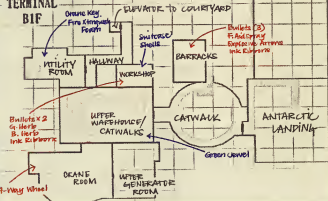 TERMINAL
B1F
Crane Key,
Fire Extinguish
Foam
ELEVATOR TO COURTYARD
Suitcase
Shells
Bullets (3)
F. Aid Spray
Explosive Arrows
Ink Ribbons
UTILITY
ROOM
HALLWAY
WORKSHOP
BARRACKS
Bullets x 2
G. Herb
B. Herb
Ink Ribbons
UPPER
WAREHOUSE/
CATWALKS
CATWALK
ANTARCTIC
LANDING
Green Jewel
CRANE
ROOM
UPPER
GENERATOR
ROOM
Way Wheel